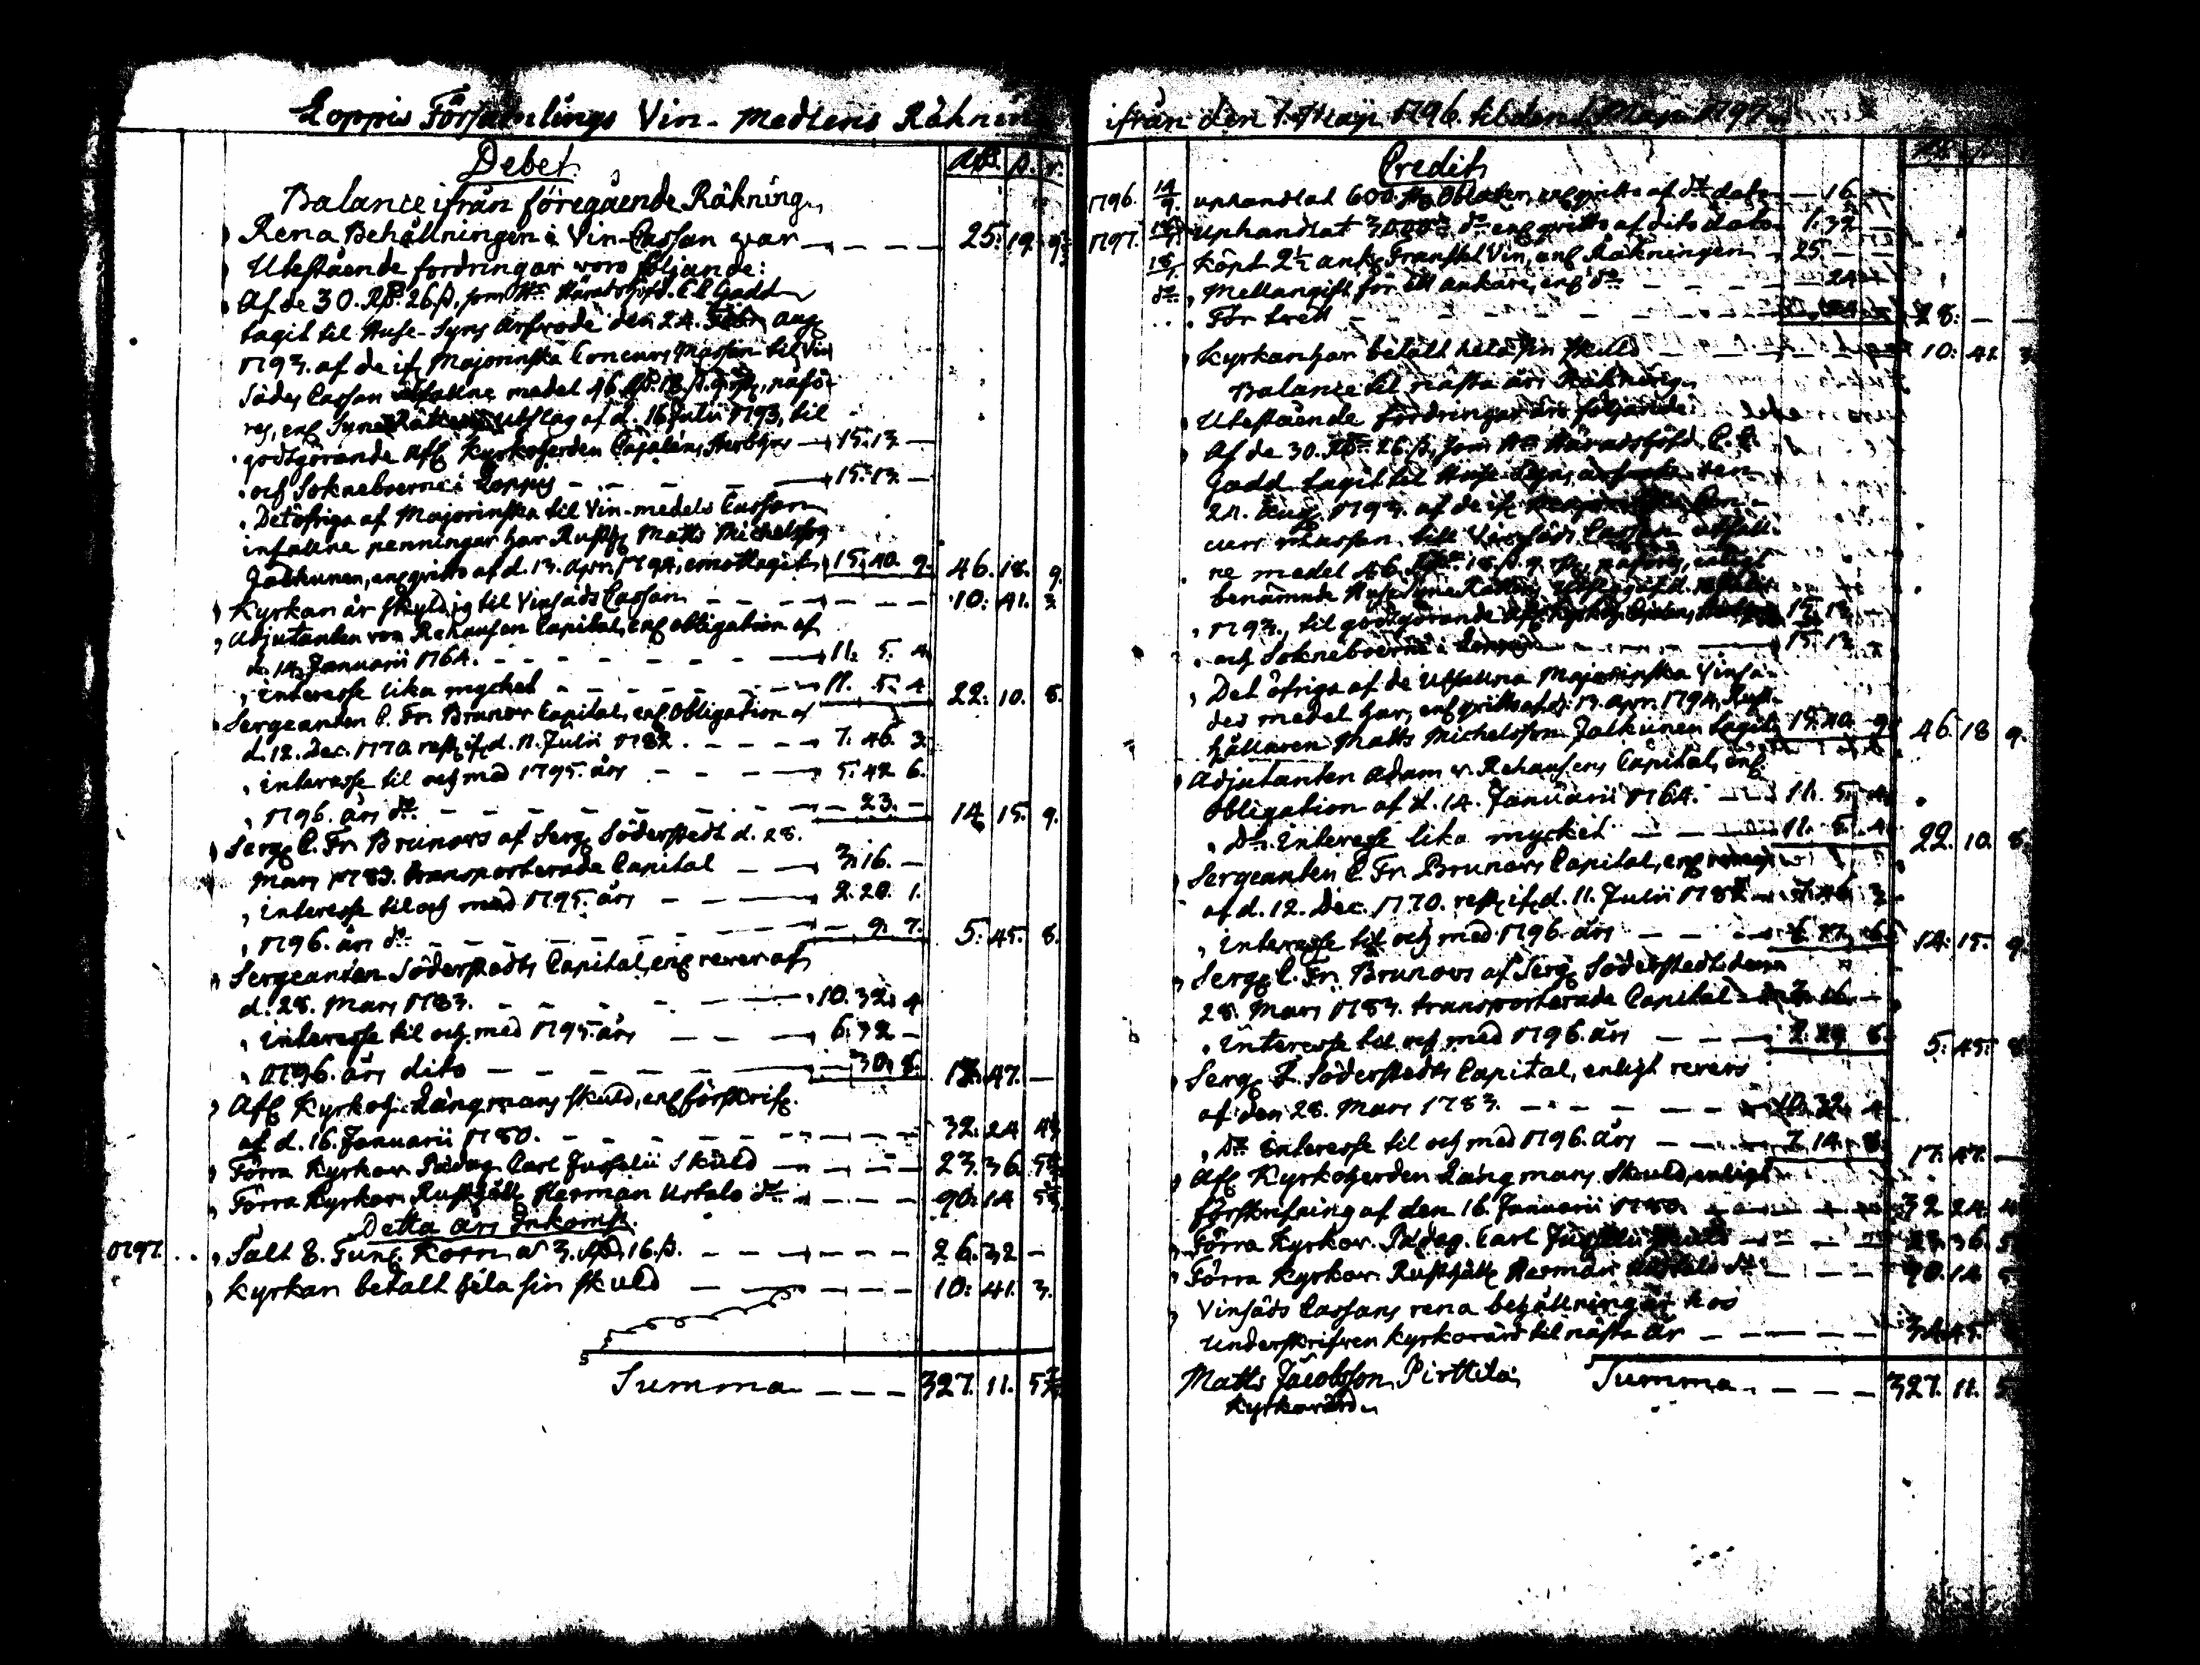 Loppis Församlings Vin-Medlens Räkning
Debet. Rd. s. r.
Balance ifrån föregående Räkning.
Rena Behållningen i Vin-Cassan war — — — 25. 19. 9
Utestående fordringar woro följande:
Af de 30. Rd. 26 s, som Hr Häradshöfd. C. E. Gadd
tagit til Huse-Syns arfvode den 24. Aug
1793. af de if Majorinska Concurs Massan til Vin
sädes Cassan utfallne medel 46 Rd. 18 s. 9 r, påfö-
res, enl Syne Rättens utslag af d. 16 Julii 1793, til
godtgörande Afl Kyrkoherden Cajalens Sterbhus — 15. 13. —
och Sokneboerne i Loppis — — — 15. 13. —
Det öfriga af Majorinska til Vin-medels Cassan
infallne penningar har Rusth Matts Michelsson
Jalkunen, enl qvitto af d. 13. Apr. 1794, emottagit 15. 40. 9. 46. 18. 9.
Kyrkan är skyldig til Vinsäds Cassan — — — 10. 41. 3.
Adjutanten von Rehausen Capital, enl obligation af
d. 14 Januarii 1764. — — — 11. 5. 4
interesse lika mycket — — — 11. 5. 4 22. 10. 8.
Sergeanten C. Fr. Brunow Capital, enl Obligation af
d. 12. Dec. 1770. rest if d. 11. Julii 1782. — — — 7. 46. 3
interesse til och med 1795. års — — 5. 42 6.
1796. års do — — — — 23. — 14 15. 9.
Serg C. Fr. Brunows af Serg Söderstedt d. 28.
Mars 1783. transporterade Capital — — 3. 16. —
interesse til och med 1795. års — — 2. 20. 1.
1796. års do — — — — 9. 7. 5. 45. 8.
Sergeanten Söderstedts Capital, enl revers af
d. 28. Mars 1783. — — — 10. 32. 4
interesse til och med 1795. års — — 6. 32 —
1796. års dito — — — — 30. 8. 17. 47. —
Afl Kyrkoh. Långmans skuld, enl förskrif.
af d. 16. Januarii 1780. — — — 32. 24 4
Förra Kyrkov. Pädag Carl Jusselii Skuld — — — 23. 36. 5
Förra Kyrkov. Rusthåll Herman Ustalo do — — — 90. 14 5
Detta års Inkomst.
1797. Sålt 8. Tun Korn à 3. Rd. 16. s. — — — 26. 32 —
Kyrkan betalt hela sin skuld — — — 10. 41. 3.
Summa — — — 327. 11. 5
ifrån den 1. Maji 1796. til den 1. Maji 1797.
Credit
1796. 14/9. uphandlat 600. st. Oblater, enl qvitto af do dato — 16 —
1797. Uphandlat 3000 do enl qvitto af dito dato 1. 32 —
Köpt 2½ ank. Franskt Vin, enl Räkningen — 25 — —
do Mellangift för ett ankare, enl do — — — 24 —
För — — — — 28. — —
Kyrkan har betalt hela sin skuld — — — 10. 41. 3
Balance til nästa års Räkning.
Utestående fordringar äro följande:
Af de 30. Rd. 26. s, som Hr Häradshöfd. C. E.
Gadd tagit til Huse-Syns arfvode den
24. Aug. 1793. af de if Majorinska Con-
curs Massan till Vinsäds Cassan utfall-
ne medel 46 Rd. 18. s. 9. r, påföres, enligt
benämnde Huse Syne Rättens
1793., til godtgörande Afl Kyrkoh. 15. 13.
och Sokneboerne i Loppis — — — 15. 13. —
Det öfriga af de utfallna Majorinska Vinsä-
des medel har, enl qvitto af d. 13. Apr. 1794, Rust-
hållaren Matts Michelsson Jalkunen tagit 15. 40. 9 46. 18 9.
Adjutanten Adam v. Rehausens Capital, enl
Obligation af d. 14. Januarii 1764. — — 11. 5. 4
Do. Interesse lika mycket — — — 11. 5. 4 22. 10. 8.
Sergeanten C. Fr. Brunows Capital, enl revers
af d. 12. Dec. 1770. rest if d. 11. Julii 1782 — 7. 46 3
Interesse til och med 1796. års — — 6. 17. 6 14. 15. 9
Serg C. Fr. Brunows af Serg Söderstedt den
28. Mars 1783. transporterade Capital — 3. 16. —
Interesse til och med 1796. års — — 2. 29 8. 5. 45. 8
Serg F. Söderstedts Capital, enligt revers
af den 28. Mars 1783. — — — 10. 32. 4
Do Interesse til och med 1796. års — — 7. 14. 8. 17. 47. —
Afl Kyrkoherden Långmans skuld, enligt
förskrifning af den 16. Januarii 1780. — — — 32 24. 4
Förra Kyrkov. Pädag. Carl Jusselii skuld — — — 23. 36. 5
Förra Kyrkov. Rusthåll Herman Ustalo do — — — 90. 14 5
Vinsäds Cassans rena behållning är hos
underskrifven Kyrkovärd til nästa år — — — 34. 45.
Matts Jacobsson Pirttilä Summa — — — 327. 11. 5
Kyrkovärd.